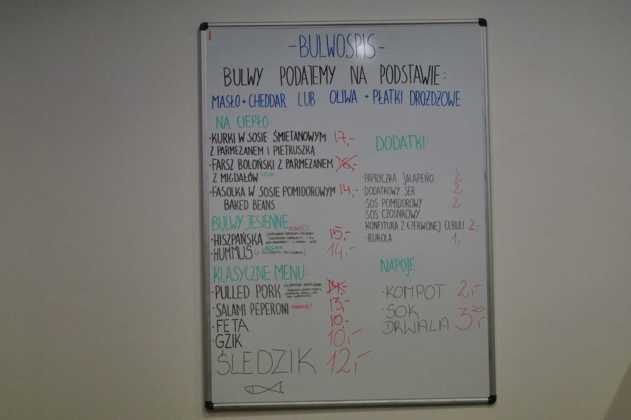 -BULWOSPIS-
BULWY PODAJEMY NA PODSTAWIE:
MASŁO + CHEDDAR LUB OLIWA + PŁATKI DROŻDŻOWE
NA CIEPŁO
·KURKI W SOSIE ŚMIETANOWYM 17,-
Z PARMEZANEM I PIETRUSZKĄ
·FARSZ BOLOŃSKI Z PARMEZANEM
Z MIGDAŁÓW
·FASOLKA W SOSIE POMIDOROWYM 14,-
BAKED BEANS
BULWY JESIENNE
·HISZPAŃSKA 15,-
·HUMMUS 14,-
KLASYCZNE MENU
·PULLED PORK 14,-
·SALAMI PEPERONI 13,-
·FETA 10,-
·GZIK 10,-
·ŚLEDZIK 12,-
DODATKI
·PAPRYCZKA JALAPEÑO 2
·DODATKOWY SER 2
·SOS POMIDOROWY 2
SOS CZOSNKOWY
KONFITURA Z CZERWONEJ CEBULI 2,-
·RUKOLA 1,-
NAPOJE
·KOMPOT 2,-
·SOK
DRWALA